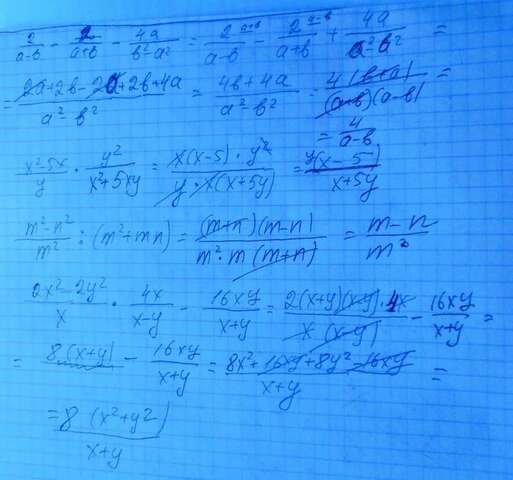 2/(a-b) - 2/(a+b) - 4a/(b²-a²) = 2^(a+b)/(a-b) - 2^(a-b)/(a+b) + 4a/(a²-b²) =
= (2a+2b-2a+2b+4a)/(a²-b²) = (4b+4a)/(a²-b²) = 4(b+a)/((a+b)(a-b)) =
= 4/(a-b)
(x²-5x)/y · y²/(x²+5xy) = (x(x-5)·y²)/(y·x(x+5y)) = y(x-5)/(x+5y)
(m²-n²)/m² : (m²+mn) = (m+n)(m-n)/(m²·m(m+n)) = (m-n)/m³
(2x²-2y²)/x · 4x/(x-y) - 16xy/(x+y) = (2(x+y)(x-y)·4x)/(x(x-y)) - 16xy/(x+y) =
= 8(x+y) - 16xy/(x+y) = (8x²+16xy+8y²-16xy)/(x+y) =
= 8(x²+y²)/(x+y)